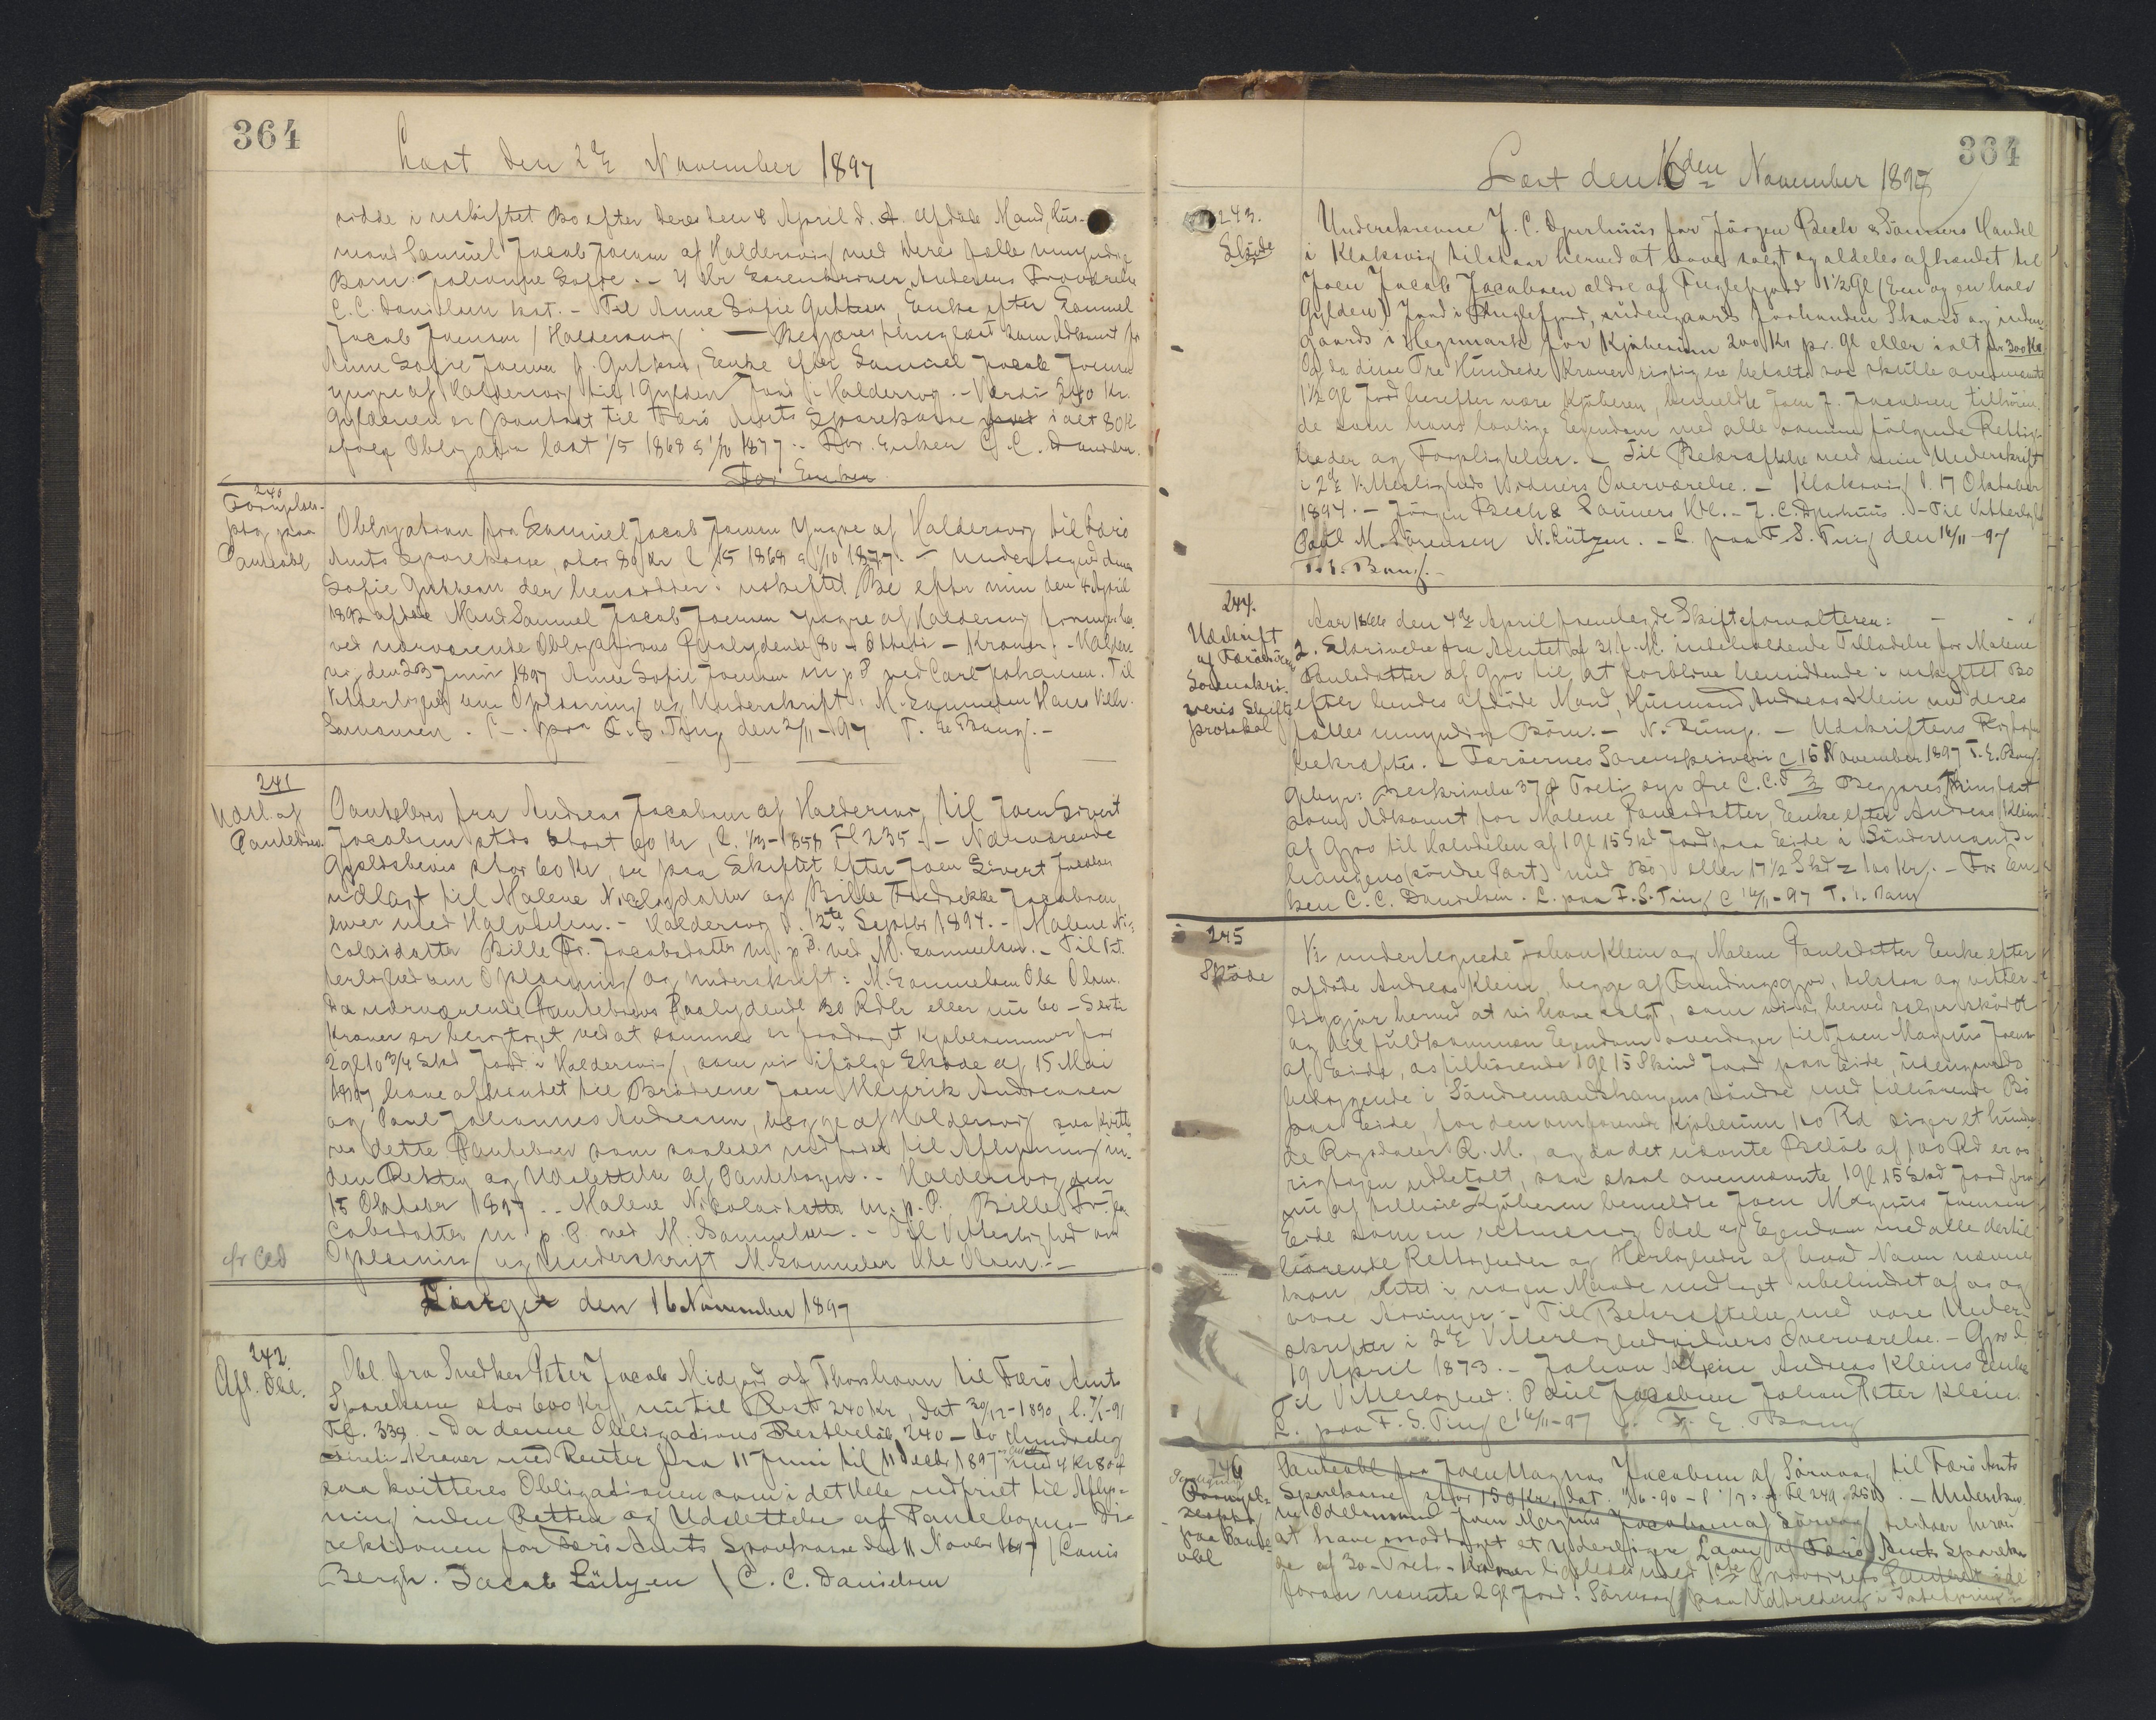 364
Læst den 2de November 1897
sidde i uskiftet Bo efter deres den 8 April d. A. afdøde Mand, Hus-
mand Samuel Jacob Joensen af Haldersvig med deres fælles umyndige
Barn Johanne Sofie. - 4 Kr Sorenskriver Andersens
C. C. Danielsen kst. - Til Anne Sofie Guttesen, Enke efter Samuel
Jacob Joensen / Haldersvig / - Begjæres thinglæst som Adkomst for
Anne Sofie Joensen f. Guttesen, Eenke efter Samuel Jacob Joensen
yngre af Haldersvig til 1 Gylden Jord i Haldersvig. - Værdi 240 Kr.
Gyldenen er pantsat til Færø Amts Sparekasse ialt 80 Kr
ifølge Obligation læst 1/5 1868 & 1/10 1877. - For Enken C. C. Danielsen.
For Enken
240
Fornyelses-
ptg. paa
Panteobl
Obligation fra Samuel Jacob Joensen Yngre af Haldersvig til Færø
Amts Sparekasse, stor 80 Kr l. 1/5 1868 & 1/10 1877. - Undertegnede Anne
Sofie Guttesen der hensidder i uskiftet Bo efter min den 8 April
1892 afdøde Mand Samuel Jacob Joensen yngre af Haldersvig fornyer her-
ved nærværende Obligations Paalydende 80 - Otteti - Kroner. - Halders-
vig den 23 Juni 1897 Anne Sofie Joensen m. p. P. ved Carl Johansen. Til
Vitterlighed om Oplæsning og Underskrift: M. Samuelsen Hans Vilh.
Simonsen. L. paa F. S. Ting den 2/11 - 97 T. E. Bang. -
241
Udsl. af
Pantebrev.
Pantebrev fra Andreas Jacobsen af Haldersvig til Joen Sivert
Jacobsen stds stort 60 Kr, l. 1/3 - 1858 Fl 235 - Nærværende
Gjældsbevis stor 60 Kr, er paa Skiftet efter Joen Sivert Jacobsen
udlagt til Malene Nicolaidatter og Bille Fredrikke Jacobsen,
hver med Halvdelen. - Haldersvig d. 12te Septbr 1894. - Malene Ni-
colaidatter Bille Fr. Jacobsdatter m. p. P. ved M. Samuelsen. - Til Vit-
terlighed om Oplæsning og Underskrift: M. Samuelsen Ole Olsen.
Da nærværende Pantebrevs Paalydende 30 Rdlr eller nu 60 - Sexti
Kroner er berigtiget ved at samme er fradraget Kjøbesummen for
2 gl 10 3/4 Skd Jord i Haldersvig, som vi ifølge Skøde af 15 Mai
1897 have afhændet til Brødrene Joen Henrik Andreasen
og Poul Johannes Andreasen, begge af Haldersvig saa kvitte-
res dette Pantebrev som saaledes indfriet til Aflysning in-
den Retten og Udslettelse af Pantebogen. - Haldersvig den
15 Oktober 1897. - Malene Nicolaidatter m. p. P. Bille Fr. Ja-
cobsdatter m. p. P. ved M. Samuelsen. - Til Vitterlighed om
Oplæsning og Underskrift M. Samuelsen Ole Olsen. -
Tinget den 16 November 1897
242.
Afl. Obl.
Obl. fra Snedker Peter Jacob Midjord af Thorshavn til Færø Amts
Sparekasse stor 600 Kr, nu til Rest 240 Kr, dat 30/12 - 1890, l. 7/1 - 91
Fl. 339. - Da denne Obligations Restbeløb 240 - to Hundrede og
Kroner med Renter fra 11 Juni til 11 Decbr 1897 med 4 Kr 80 Ø
saa kvitteres Obligationen som i det Hele indfriet til Aflys-
ning inden Retten og Udslettelse af Pantebogen. - Di-
rektionen for Færø Amts Sparekasse den 11 Novbr 1897 / Louis
Bergh. Jacob Lützen \ C. C. Danielsen
364
Læst den 16den November 1897
243.
Skjøde
Underskrevne J. C. Djurhuus for Jörgen Bech & Sønners Handel
i Klaksvig tilstaar herved at have solgt og aldeles afhændet til
Joen Jacob Jacobsen ældre af Fuglefjord 1 1/2 Gl (Een og en halv
Gylden) Jord i Fuglefjord, udengaards forhenden Skard og inden-
gaards i Hegnmark for Kjøbesum 200 Kr pr. Gl eller ialt for 300 Kr.
Og da disse Tre Hundrede Kroner rigtig ere betalte saa skulle ovennævnte
1 1/2 gl Jord herefter være Kjøberen, bemeldte Joen J. Jacobsen tilhøren-
de som hans lovlige Ejendom med alle samme følgende Rettig-
heder og Forpligtelser. - Til Bekræftelse med min Underskrift
i 2de Vitterligheds Vidners Overværelse. - Klaksvig d. 17 Oktober
1894. - Jörgen Bech & Sønners Hdl. - J. C. Djurhuus. - Til Vitterlighed
Poul M. Sörensen N. Lützen. - L. paa F. S. Ting den 16/11 - 97
T. E. Bang. -
244.
Udskrift
af Færøernes
Sorenskri-
veris Skifte
protokol
Aar den 4de April foretog de Skifteforvalteren:
2. Skrivelse fra Amtet af 31 f. M. indeholdende Tilladelse for Malene
Poulsdatter af Gjov til at forblive hensiddende i uskiftet Bo
efter hendes afdøde Mand, Husmand Andreas Klein med deres
fælles umyndige Børn. - N. Bump. - Udskriftens Rigtighed
bekræftes. - Færøernes Sorenskriveri d 15 November 1897 T. E. Bang.
Gebyr: Beskrivelse 37 Ø Treti syv Øre C. C. D Begjæres thinglæst
som Adkomst for Malene Poulsdatter, Enke efter Andreas Klein
af Gjov til Halvdelen af 1 gl 15 Skd Jord paa Eide i Søndermands-
haugens (søndre Part) med Bø, eller 17 1/2 Skd = 100 Kr. - For En-
ken C. C. Danielsen. L. paa F. S. Ting d 16/11 - 97 T. E. Bang
245
Skøde
Vi undertegnede Johan Klein og Malene Poulsdatter Enke efter
afdøde Andreas Klein, begge af Fundingsgjov, tilstaa og vitter-
liggjør herved at vi have solgt, som vi og herved sælger skjøde
og til fuldkommen Ejendom overdrager til Joen Magnus Joensen
af Eide, os tilhørende 1 gl 15 Skind Jord paa Eide, udengaards
beliggende i Søndremandshaugens søndre med tilhørende Bø
paa Eide, for den omforenede Kjøbesum 100 Rd siger et hundre-
de Rigsdaler R. M., og da det nævnte Beløb af 100 Rd er os
rigtigen udbetalt, saa skal ovennævnte 1 gl 15 Skd Jord fra
nu af tilhøre Kjøberen bemeldte Joen Magnus Joensen
Eide som en retmæssig Odel og Ejendom med alle dertil
hørende Rettigheder og Herligheder af hvad Navn nævnes
kan, intet i nogen Maade undtaget ubehindret af os og
vore Arvinger. - Til Bekræftelse med vore Under-
skrifter i 2de Vitterlighedsvidners Overværelse. - Gjov d
19 April 1873. - Johan Klein Andreas Kleins Enke
Til Vitterlighed: Poul Jacobsen Johan Peter Klein.
L. paa F. S. Ting d 16/11 - 97 T. E. Bang
246
paa Pante-
obl
Panteobl fra Joen Magnus Jacobsen af Sørvaag til Færø Amts
Sparekasse stor 150 Kr, dat. Fl 249. 250. - Underskrev-
ne Odelsmand Joen Magnus Jacobsen af Sørvaag tilstaar herved
at have modtaget et yderligere Laan af Færø Amts Sparekas-
se af 30 - Treti - Kroner ligeledes med 1ste Prioritets Panteret i de
foran nævnte 2 gl Jord i Sørvaag paa